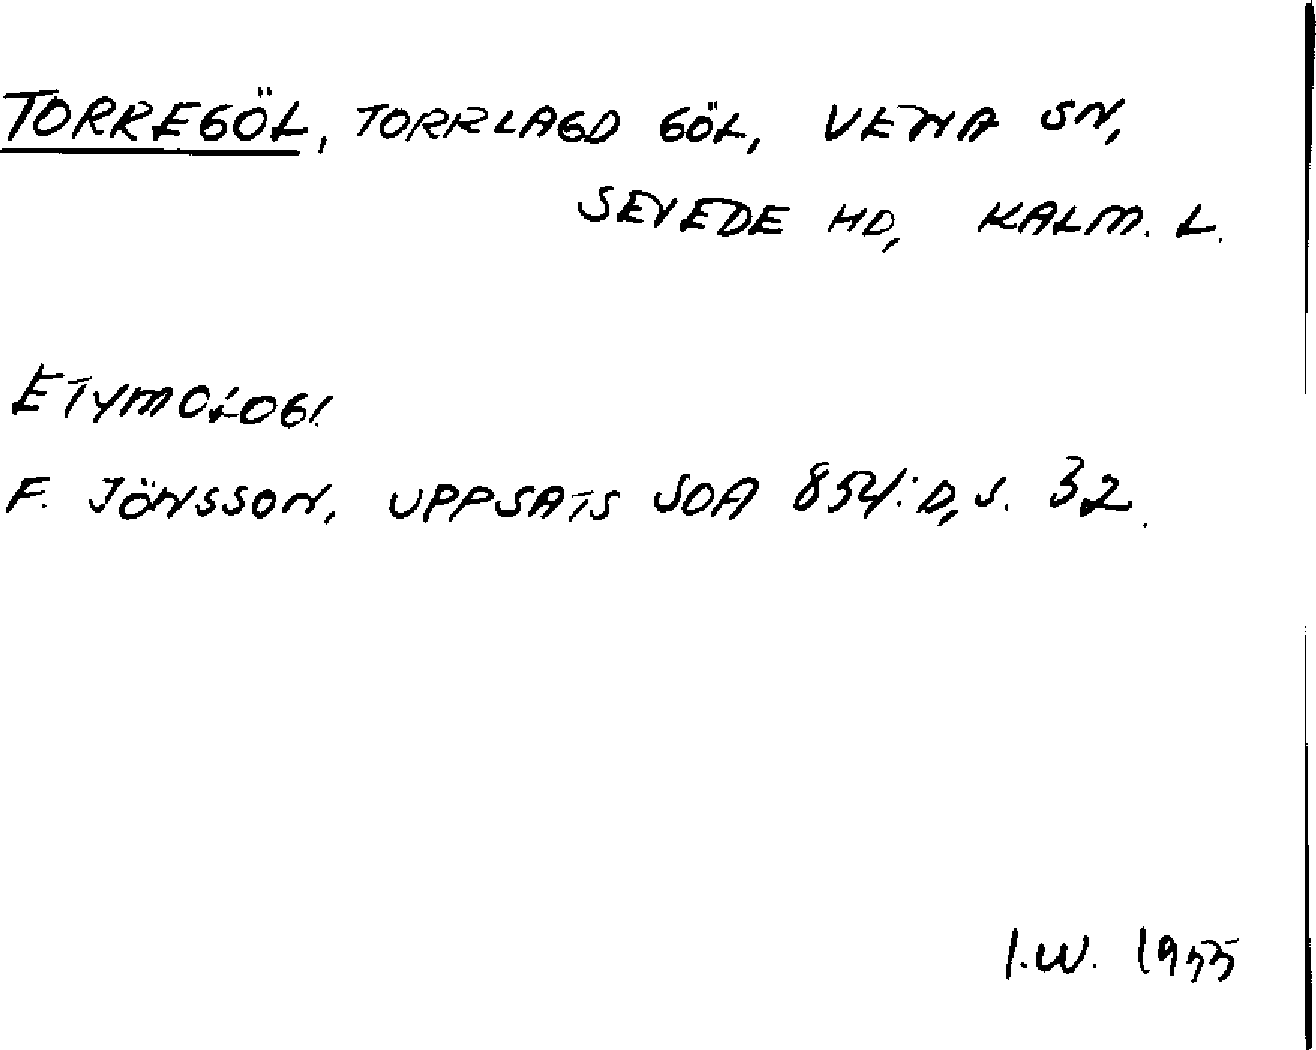 TORREGÖL, TORRLAGD GÖL, VENA SN,
SEVEDE HD, KALM. L.
ETYMOLOGI.
F. JÖNSSON, UPPSATS SOA 854:D, S. 32.
I.W. 1955